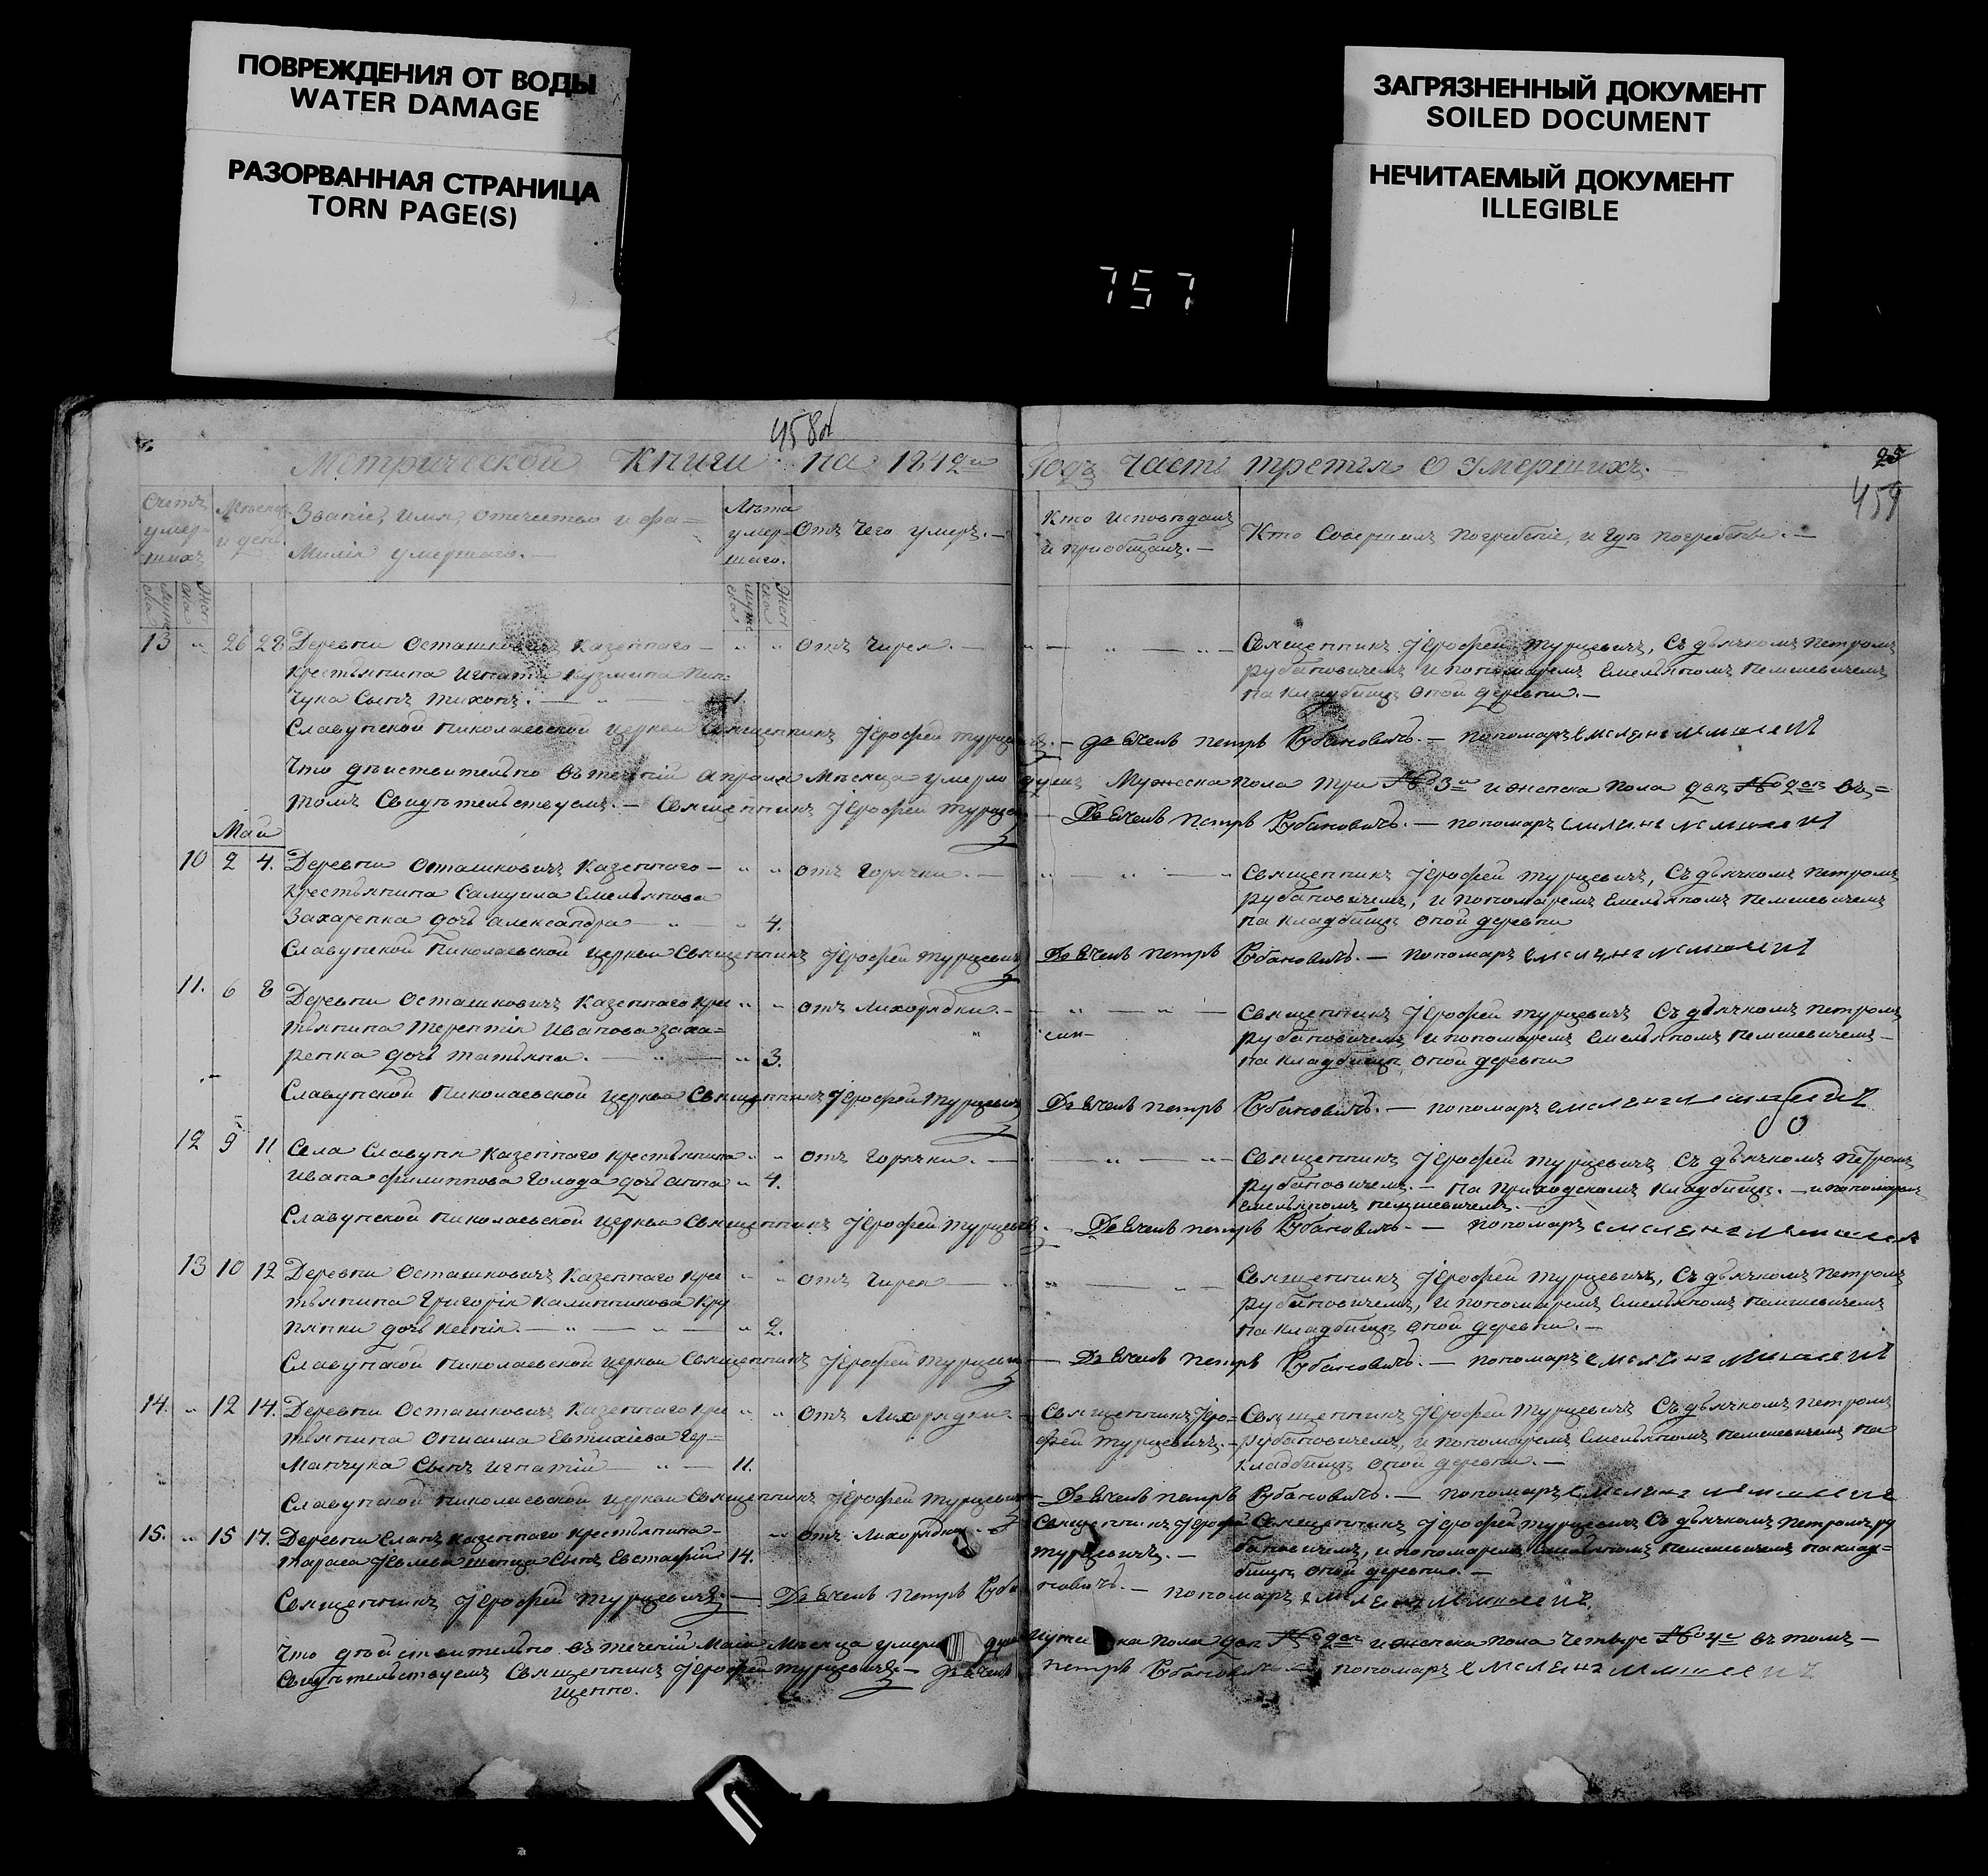 ПОВРЕЖДЕНИЯ ОТ ВОДЫ
WATER DAMAGE
РАЗОРВАННАЯ СТРАНИЦА
TORN PAGE(S)
ЗАГРЯЗНЕННЫЙ ДОКУМЕНТ
SOILED DOCUMENT
НЕЧИТАЕМЫЙ ДОКУМЕНТ
ILLEGIBLE
757
458
Метрической Книги на 1842й
Годъ Часть третья О Умершихъ.
25
459
Счетъ умер-шихъ
Мѣсяцъ и день
Званіе, имя, отечество и фа=
милія умершаго.—
Лѣта умер-шаго.
Отъ чего умеръ.—
Кто исповѣдалъ
и приобщалъ.—
Кто Совершалъ погребеніе, и гдѣ погребены.—
13 " 26 28 Деревни Осташковичъ Казеннаго — " " отъ чирея.—
Крестьянина Игнатія Кузмина Пин=
чука Сынъ Тихонъ.— 1.
Священникъ Іерофей Турцевичъ, Съ дьячкомъ Петромъ
Рубановичемъ и пономаремъ Емельяномъ Немшевичемъ
на кладбищѣ оной деревни.—
Славунской Николаевской церкви Священникъ Іерофей Турцевичъ.— Дьячекъ Петръ Рубановичъ.— пономаръ
Что дѣйствительно въ теченіи Апреля Мѣсяца умерло душъ Мужеска пола три № 3и и женска пола двѣ № двѣ въ=
томъ Свидѣтельствуемъ.— Священникъ Іерофей Турцевичъ — Дьячекъ Петръ Рубановичъ.— пономаръ
Май
10 2 4. Деревни Осташковичъ Казеннаго — " " отъ горячки.—
Крестьянина Самуила Емельянова
Захаренка дочь Александра — " 4.
Священникъ Іерофей Турцевичъ, Съ дьячкомъ Петромъ
Рубановичемъ, и пономаремъ Емельяномъ Немшевичемъ
на кладбищѣ оной деревни
Славунской Николаевской церкви Священникъ Іерофей Турцевичъ Дьячекъ Петръ Рубановичъ.— пономаръ
11. 6 8 Деревни Осташковичъ Казеннаго Крес " " отъ лихорядки.—
тьянина Терентія Иванова Заха=
ренка дочь Татьяна.— " 3.
Священникъ Іерофей Турцевичъ Съ дьячкомъ Петромъ
Рубановичемъ и пономаремъ Емельяномъ Немшевичемъ —
на кладбищѣ оной деревни
Славунской Николаевской церкви Священникъ Іерофей Турцевичъ Дьячекъ Петръ Рубановичъ.— пономаръ
12 9 11. Села Славуня Казеннаго крестьянина " " отъ горячки.—
Ивана Филиппова Голода дочь Анна " 4.
Священникъ Іерофей Турцевичъ Съ дьячкомъ Петромъ
Рубановичемъ.— На Приходскомъ Кладбищѣ.— и пономаремъ
Емельяномъ Немшевичемъ.—
Славунской Николаевской церкви Священникъ Іерофей Турцевичъ.— Дьячекъ Петръ Рубановичъ.— пономаръ
13 10 12 Деревни Осташковичъ Казеннаго Крес " " отъ чирея —
тьянина Григорія Калинникова Кру
пянки дочь Ксенія.— " 2.
Священникъ Іерофей Турцевичъ, Съ дьячкомъ Петромъ
Рубановичемъ, и пономаремъ Емельяномъ Немшевичемъ
на кладбищѣ оной деревни.—
Славунской Николаевской церкви Священникъ Іерофей Турцевичъ — Дьячекъ Петръ Рубановичъ.— пономаръ
14. " 12 14. Деревни Осташковичъ Казеннаго Крес " " отъ лихорядки
тьянина Онисима Евтихіева Гер=
манчука Сынъ Игнатій — 11.
Священникъ Іеро=
фей Турцевичъ.—
Священникъ Іерофей Турцевичъ Съ дьячкомъ Петромъ
Рубановичемъ, и пономаремъ Емельяномъ Немшевичемъ на
кладбищѣ оной деревни.—
Славунской Николаевской церкви Священникъ Іерофей Турцевичъ — Дьячекъ Петръ Рубановичъ.— пономаръ
15. " 15 17. Деревни Еланъ Казеннаго крестьянина — " отъ лихорядки
Тараса Сынъ Евстафій 14.
Священникъ Іерофей
Турцевичъ.—
Священникъ Іерофей Турцевичъ Съ дьячкомъ Петромъ Ру
бановичемъ, и пономаремъ Емельяномъ Немшевичемъ на клад=
бищѣ оной деревни.—
Священникъ Іерофей Турцевичъ.— Дьячекъ Петръ Рубановичъ.— пономаръ
Что дѣйствительно въ теченіи Маія Мѣсяца умерло душъ мужеска пола двѣ № двѣ и женска пола четыре № 4е въ томъ —
Свидѣтельствуемъ Священникъ Іерофей Турцевичъ — Дьячекъ Петръ Рубановичъ — пономаръ